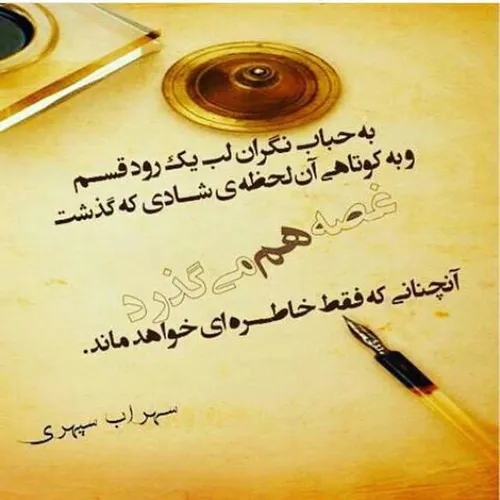 به حباب نگران لب یک رود قسم
و به کوتاهی آن لحظه‌ی شادی که گذشت
غصه هم می‌گذرد
آنچنانی که فقط خاطره‌ای خواهد ماند.
سهراب سپهری